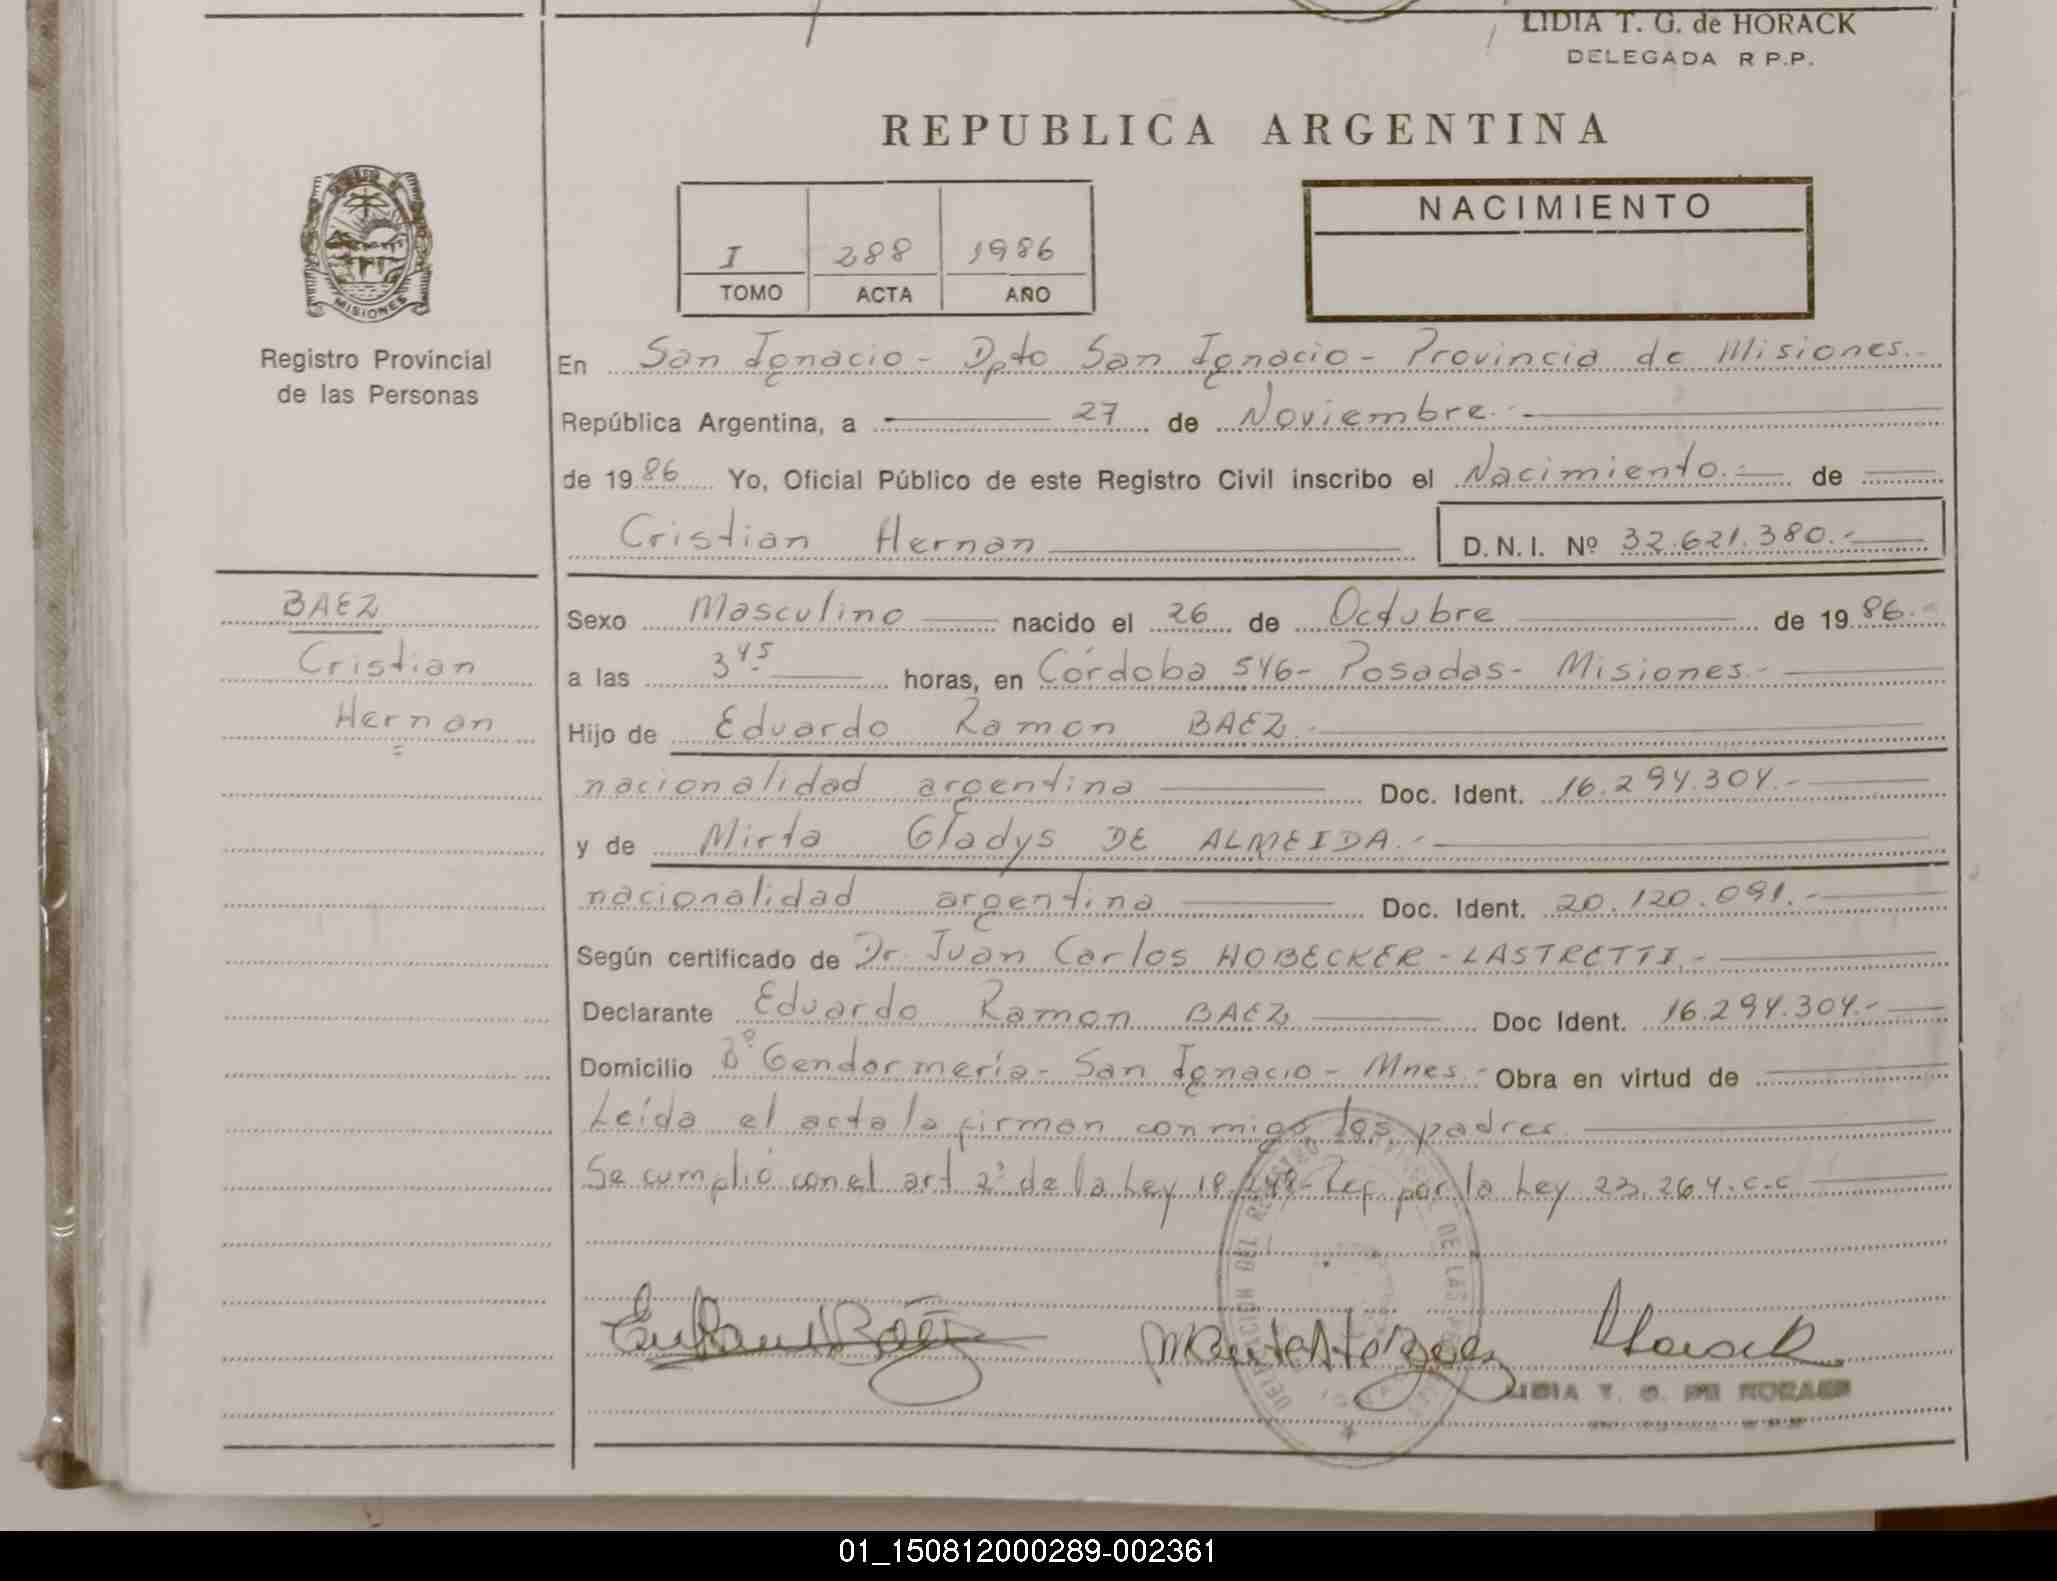 LIDIA T. G. de HORACK
DELEGADA R P.P.
REPUBLICA ARGENTINA
NACIMIENTO
I 288 1986
TOMO ACTA AÑO
MISIONES
Registro Provincial
de las Personas
En San Ignacio - Dpto San Ignacio - Provincia de Misiones.-
República Argentina, a 27 de Noviembre.-
de 1986 Yo, Oficial Público de este Registro Civil inscribo el Nacimiento.- de
Cristian Hernan D.N.I. Nº 32.621.380.-
BAEZ
Cristian
Hernan
Sexo Masculino nacido el 26 de Octubre de 1986.-
a las 3 45 horas, en Córdoba 546- Posadas- Misiones.-
Hijo de Eduardo Ramon BAEZ.-
nacionalidad argentina Doc. Ident. 16.294.304.-
y de Mirta Gladys DE ALMEIDA.-
nacionalidad argentina Doc. Ident. 20.120.091.-
Según certificado de Dr. Juan Carlos HOBECKER - LASTRETTI.-
Declarante Eduardo Ramon BAEZ Doc Ident. 16.294.304.-
Domicilio Bº Gendarmería - San Ignacio - Mnes.- Obra en virtud de
Leída el acta la firman conmigo los padres
Se cumplió con el art 2º de la Ley 18.248- por la Ley 23.264.c.c
Horack
LIDIA T. G. DE HORACK
01_150812000289-002361